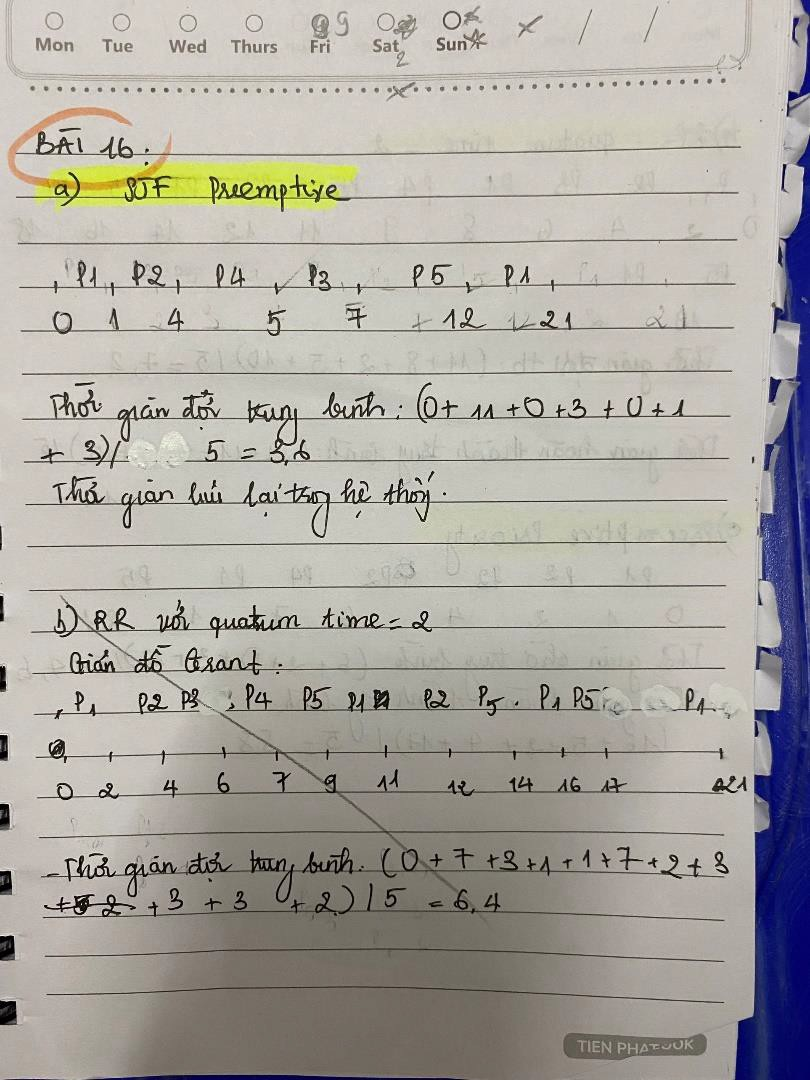 Mon Tue Wed Thurs Fri Sat Sun
BÀI 16:
a) SJF Preemptive
P1 P2 P4 P3 P5 P1
0 1 4 5 7 12 21
Thời gian đợi trung bình: (0 + 11 + 0 + 3 + 0 + 1
+ 3)/ 5 = 3,6
Thời gian lưu lại trong hệ thống.
b) RR với quatum time = 2
Gián đồ Grant:
P1 P2 P3 P4 P5 P1 P2 P5 P1 P5 P1
0 2 4 6 7 9 11 12 14 16 17 21
- Thời gian đợi trung bình: (0 + 7 + 3 + 1 + 1 + 7 + 2 + 3
+ 3 + 3 + 2) / 5 = 6,4